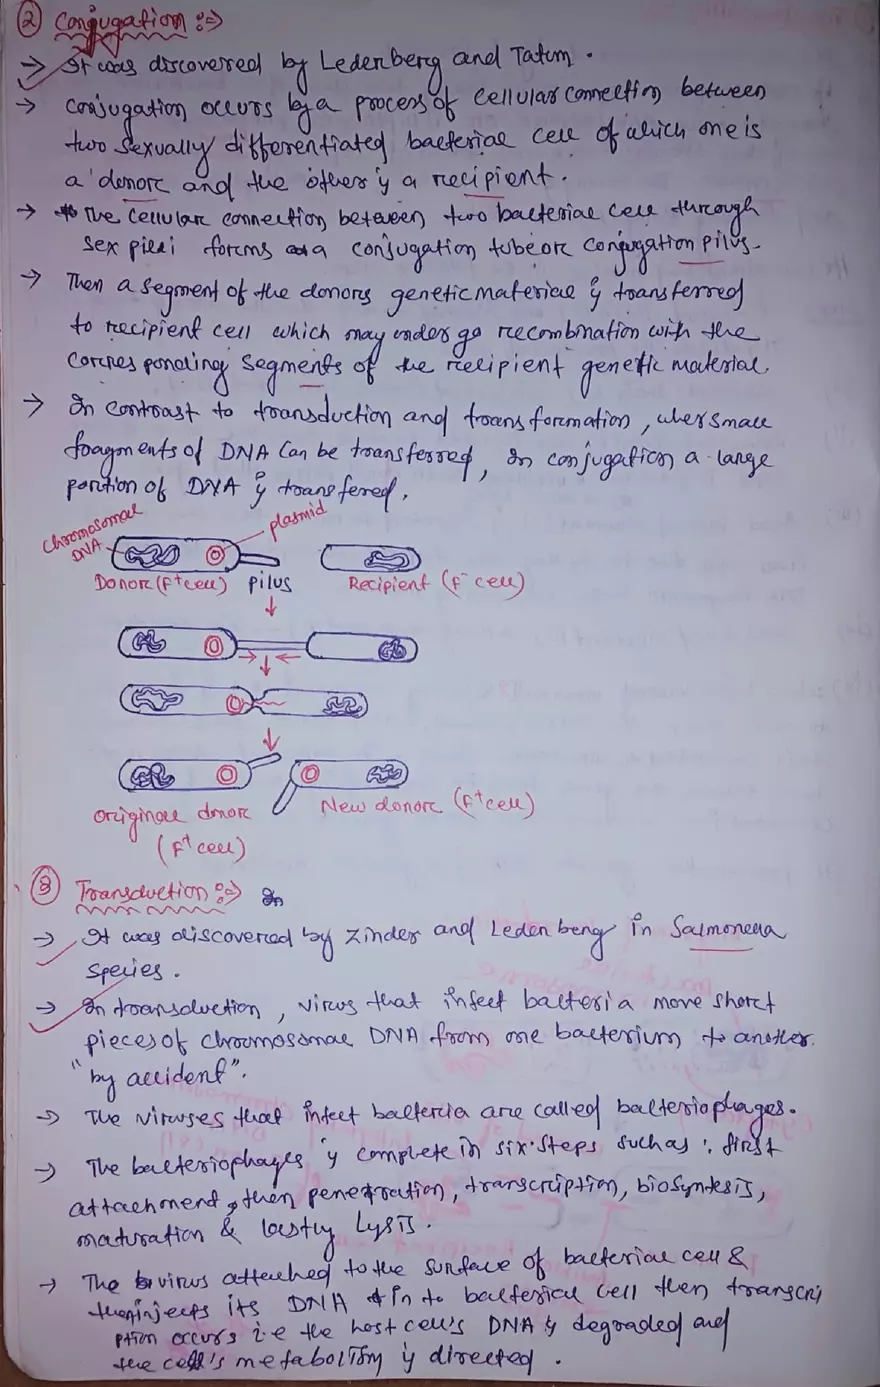 ② Conjugation :⇒
→ It was discovered by Lederberg and Tatum.
→ Conjugation occurs by a process of cellular connection between
two sexually differentiated bacterial cell of which one is
a donor and the other is a recipient.
→ The cellular connection between two bacterial cell through
sex pili forms a conjugation tube or conjugation pilus.
→ Then a segment of the donors genetic material is transferred
to recipient cell which may undergo recombination with the
corresponding segments of the recipient genetic material.
→ In contrast to transduction and transformation, wher small
fragments of DNA can be transferred, In conjugation a large
portion of DNA is transfered.
Chromosomal DNA
plasmid
Donor (F+ cell) pilus Recipient (F- cell)
Original donor (F+ cell)
New donor (F+ cell)
③ Transduction :⇒ In
→ It was discovered by Zinder and Lederberg in Salmonella
species.
→ In transduction, virus that infect bacteria move short
pieces of chromosomal DNA from one bacterium to another
"by accident".
→ The viruses that infect bacteria are called bacteriophages.
→ The bacteriophages is complete in six steps such as : first
attachment, then penetration, transcription, biosyntesis,
maturation & lastly Lysis.
→ The virus attached to the surface of bacterial cell &
then injects its DNA in to bacterial cell then transcri
ption occurs i.e the host cell's DNA is degraded and
the cell's metabolism is directed.